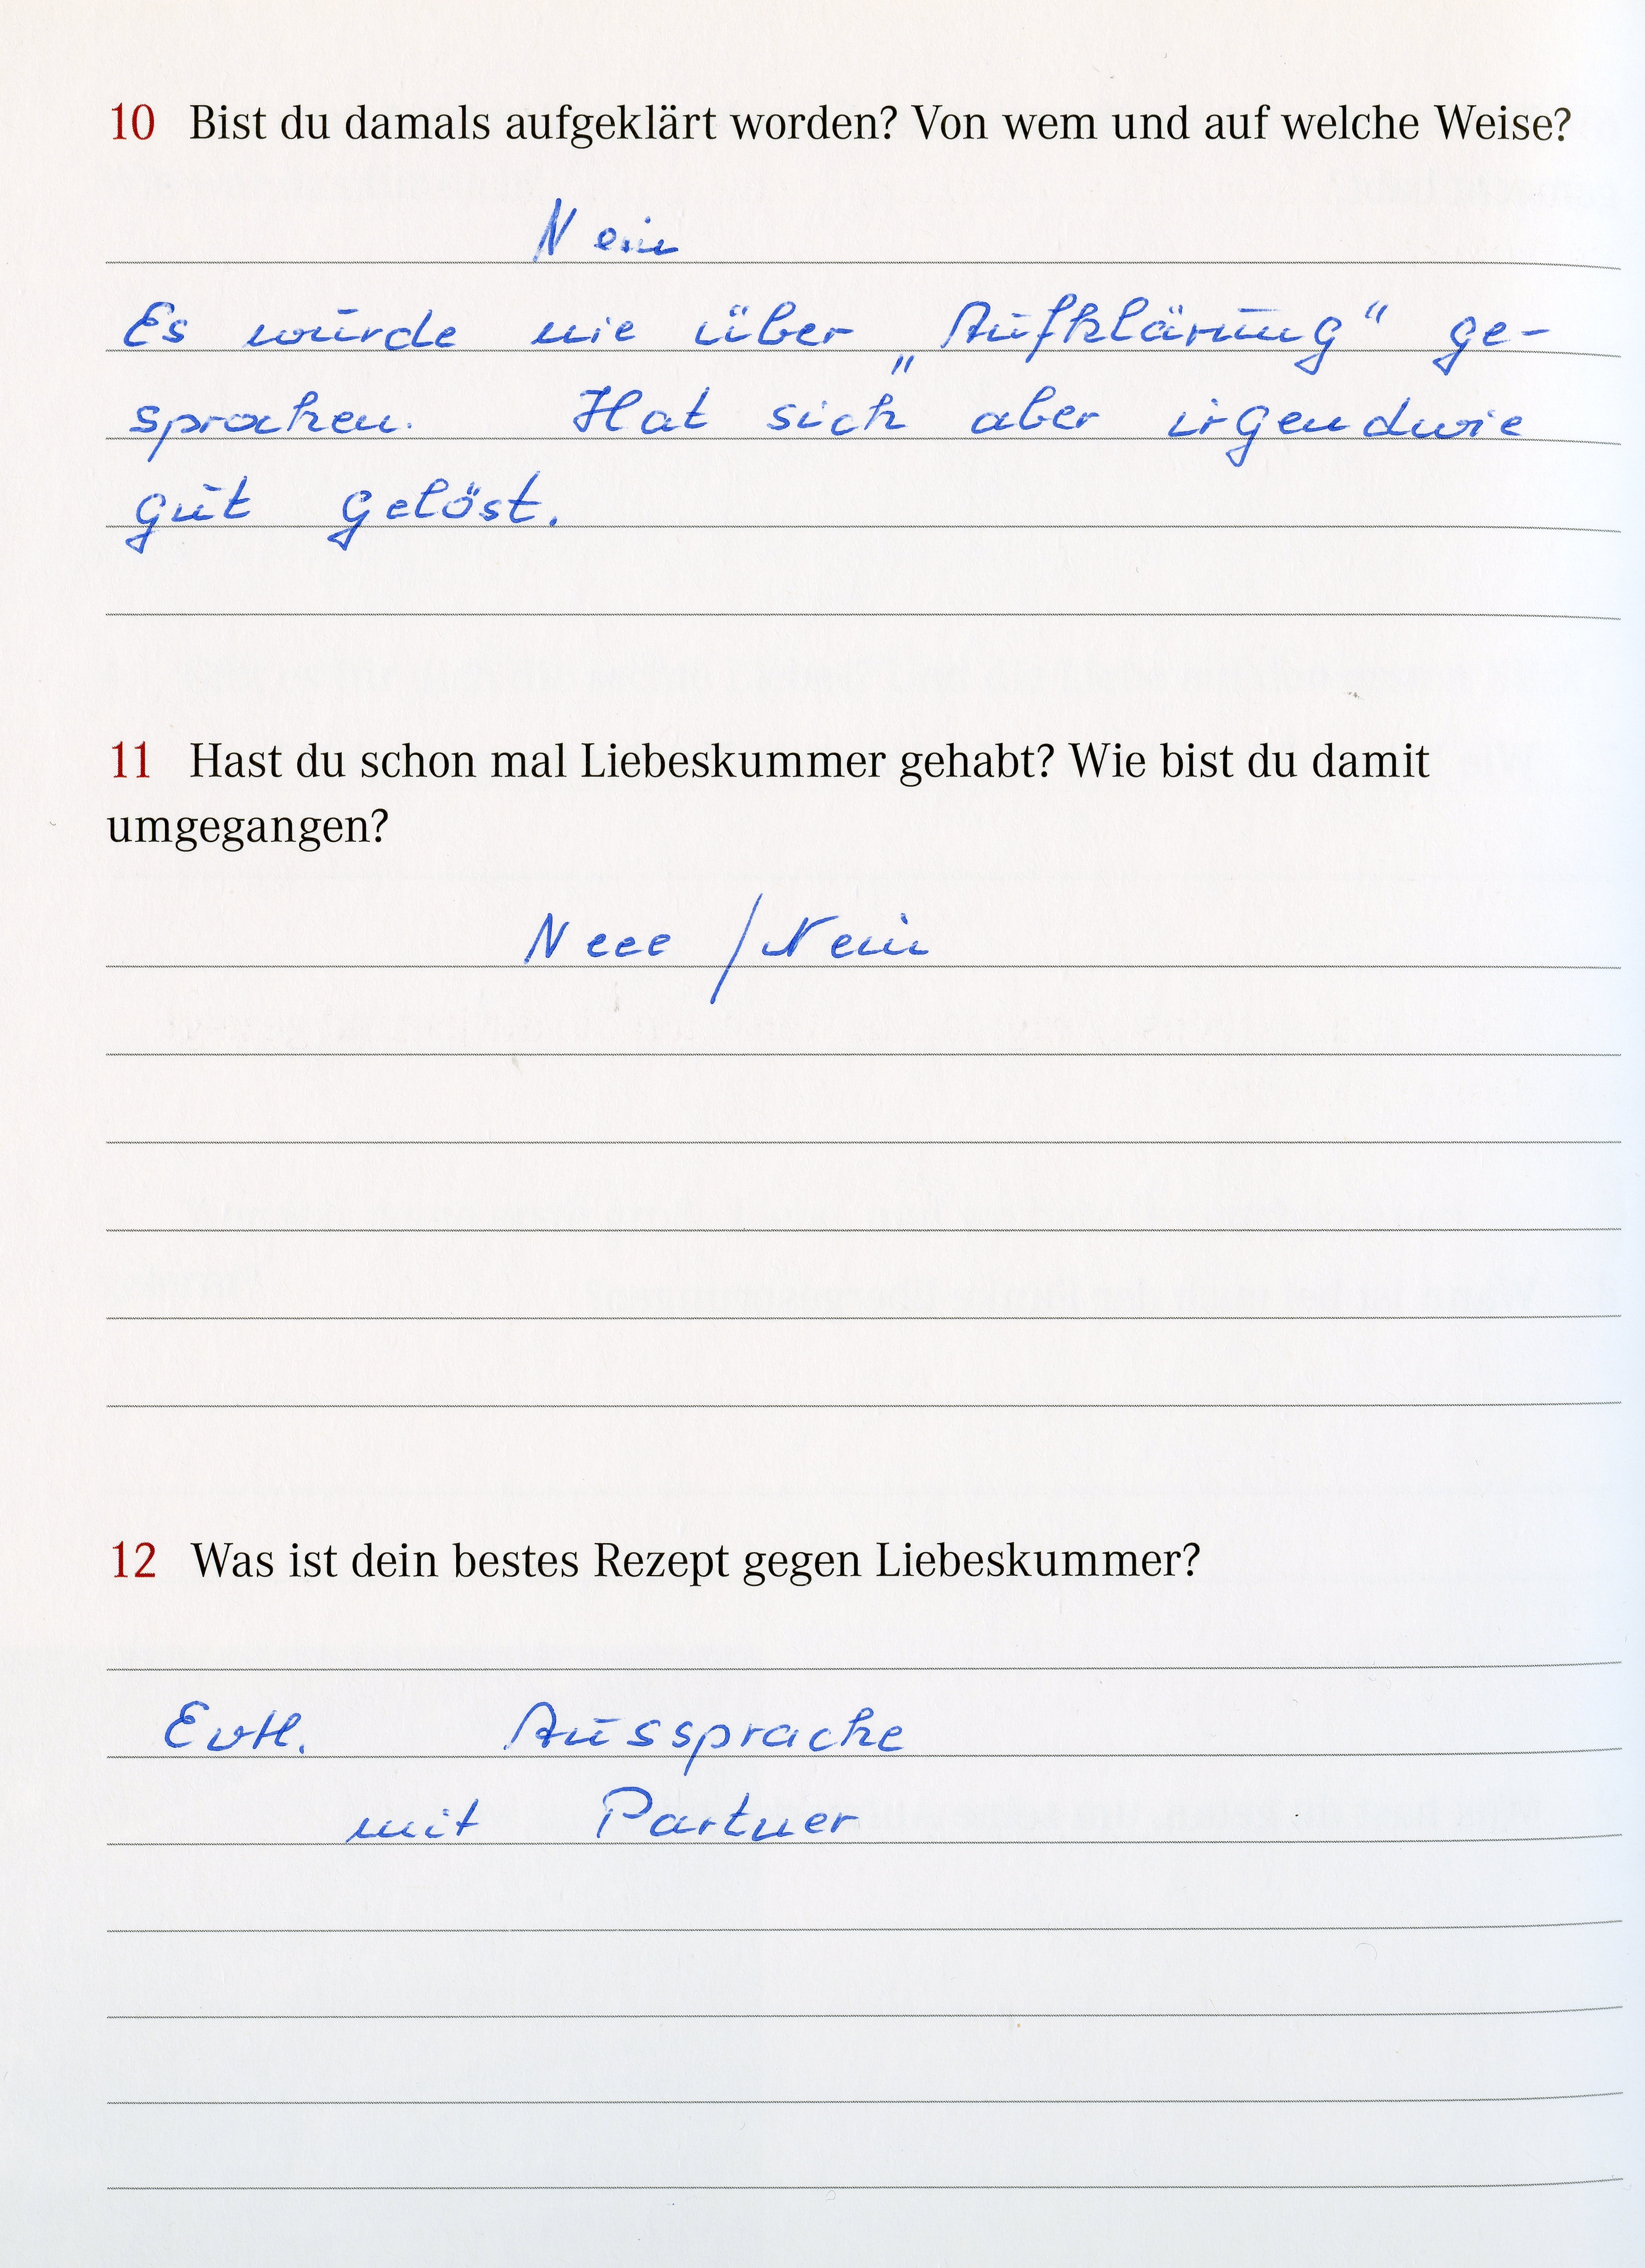 10 Bist du damals aufgeklärt worden? Von wem und auf welche Weise?
Nein
Es wurde nie über „Aufklärung“ ge-
sprochen. Hat sich aber irgendwie
gut gelöst.
11 Hast du schon mal Liebeskummer gehabt? Wie bist du damit
umgegangen?
Neee / Nein
12 Was ist dein bestes Rezept gegen Liebeskummer?
Evtl. Aussprache
mit Partner